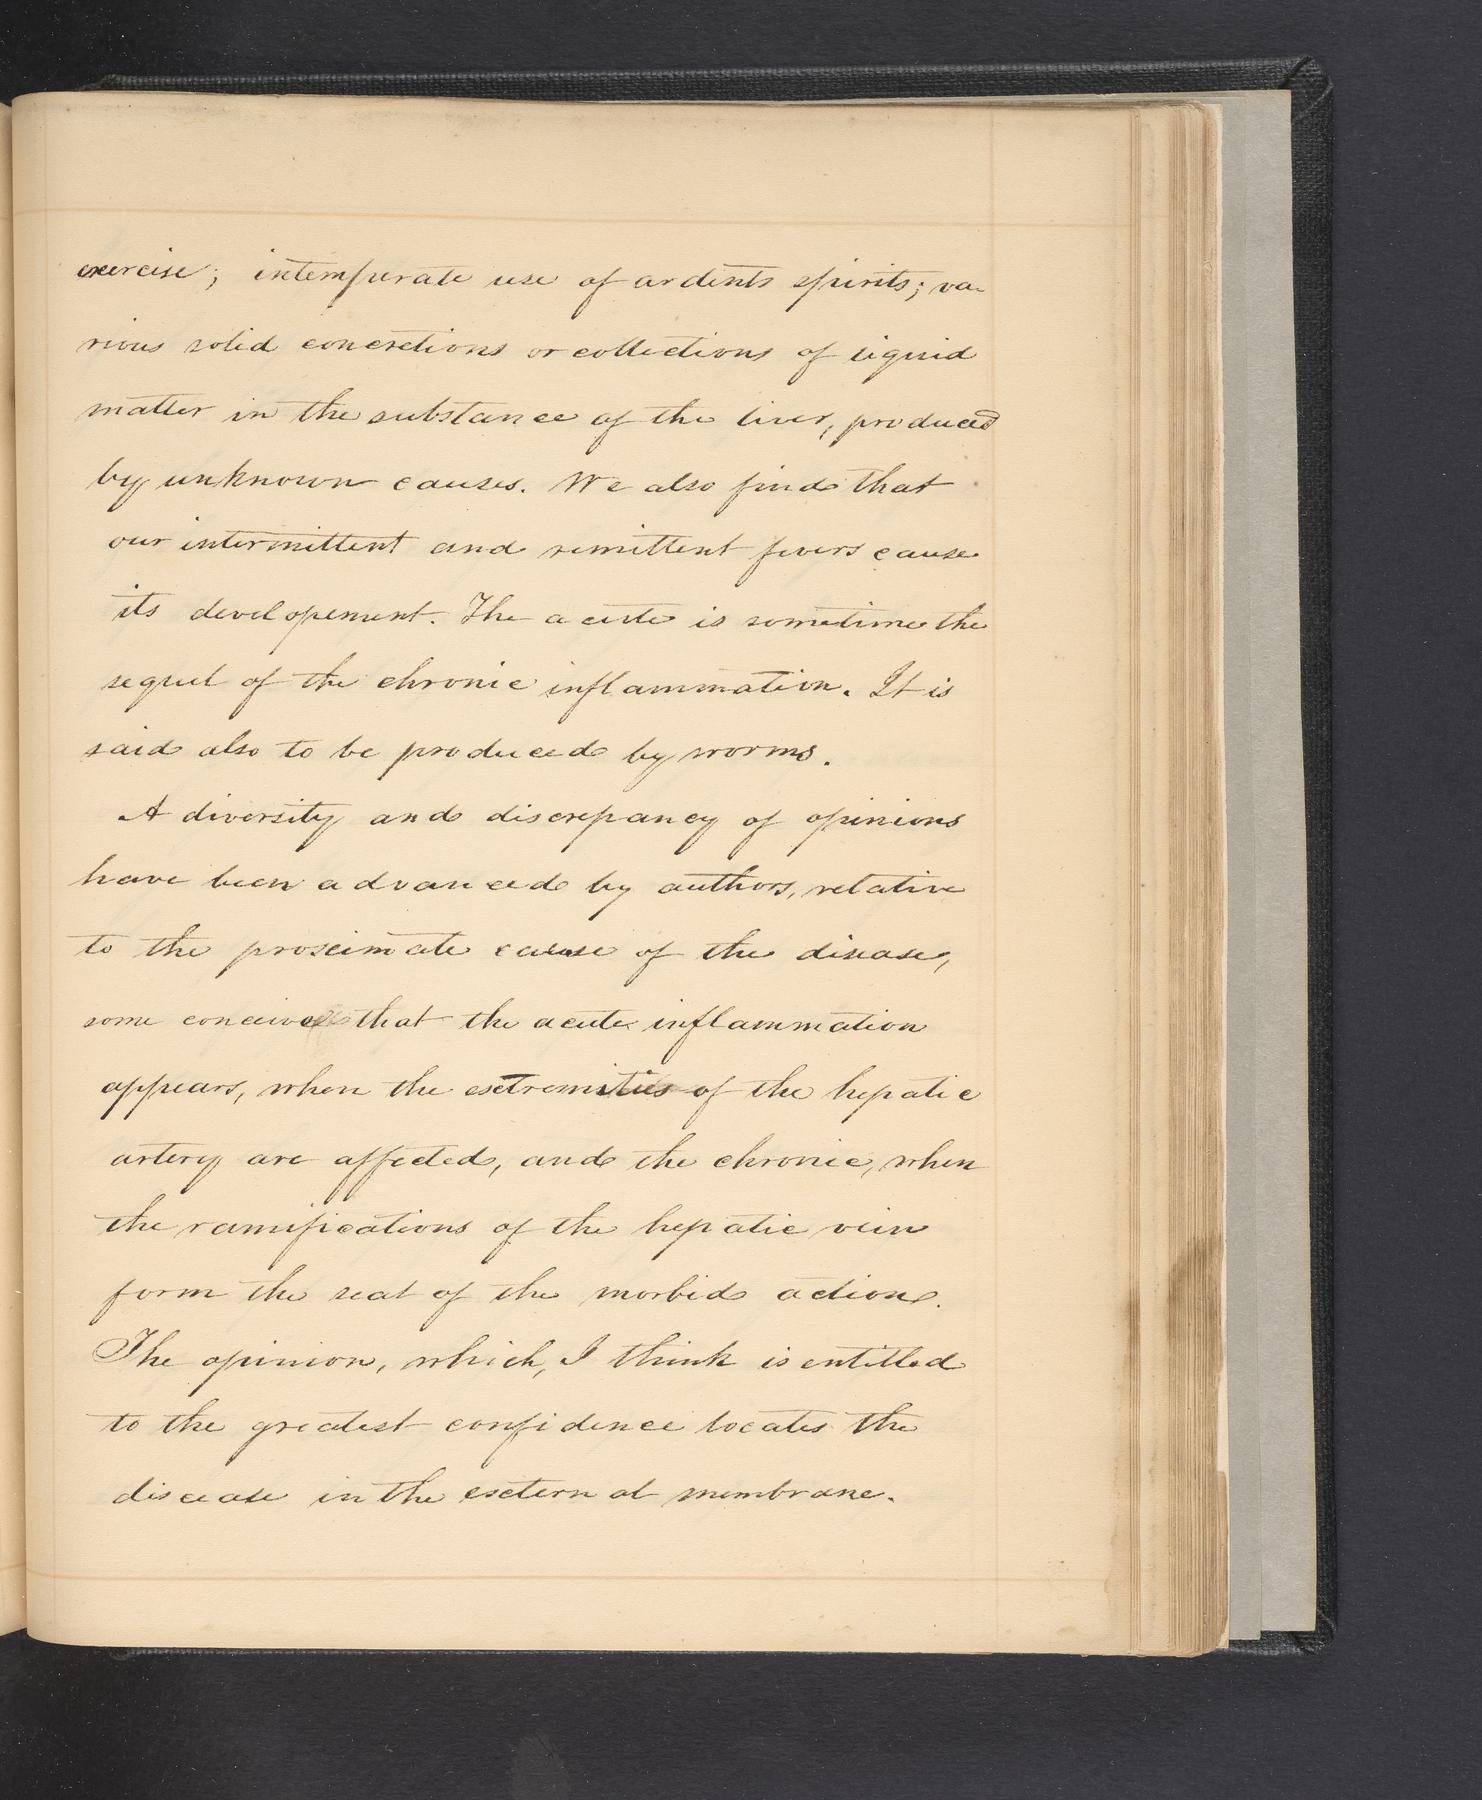 exercise; intemperate use of ardents spirits; va-
rious solid concretions or collections of liquid
matter in the substance of the liver, produced
by unknown causes. We also find that
our intermittent and remittent fevers cause
its developement. The acute is sometime the
sequel of the chronic inflammation. It is
said also to be produced by worms.
A diversity and discrepancy of opinions
have been advanced by authors, relative
to the proximate cause of the disease,
some conceive that the acute inflammation
appears, when the extremities of the hepatic
artery are affected, and the chronic, when
the ramifications of the hepatic vein
form the seat of the morbid action.
The opinion, which, I think is entitled
to the greatest confidence locates the
disease in the external membrane.